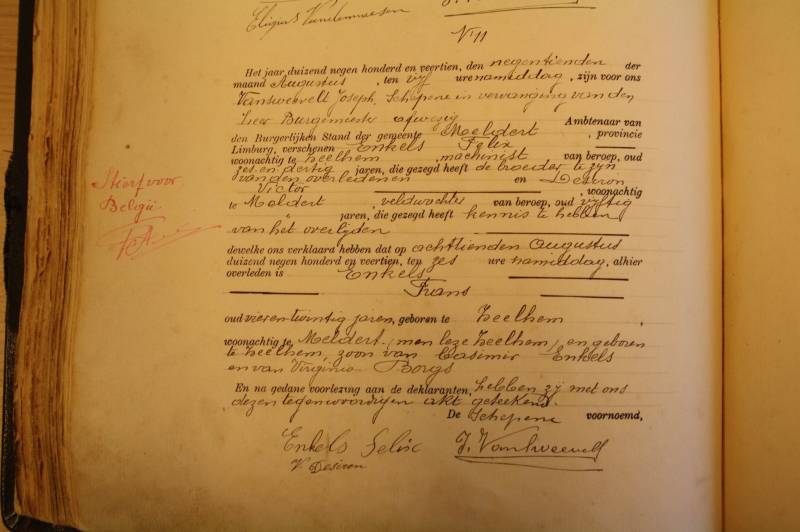 Eligius Vandermaesen
N. 11
Het jaar duizend negen honderd en veertien, den negentienden der
maand Augustus, ten vijf ure namiddag, zijn voor ons
Vansweevelt Joseph, Schepene in vervanging van den
Heer Burgemeester afwezig Ambtenaar van
den Burgerlijken Stand der gemeente Meldert, provincie
Limburg, verschenen Enkels Felix
woonachtig te Zeelhem, machinist van beroep, oud
zes en dertig jaren, die gezegd heeft de broeder te zijn
van den overledenen en Desiron
Victor, woonachtig
te Meldert, veldwachter van beroep, oud vijftig
" jaren, die gezegd heeft kennis te hebben
van het overlijden
dewelke ons verklaard hebben dat op achttienden Augustus
duizend negen honderd en veertien, ten zes ure namiddag, alhier
overleden is Enkels
Frans
oud vier en twintig jaren, geboren te Zeelhem
woonachtig te Meldert, men leze Zeelhem, en geboren
te Zeelhem, zoon van Casimir Enkels
en van Virginie Borgs
En na gedane voorlezing aan de deklaranten, hebben zij met ons
dezen tegenwoordigen akt geteekend.
De Schepene voornoemd,
Enkels Felix J. Vansweevelt
V. Desiron
Stierf voor
België